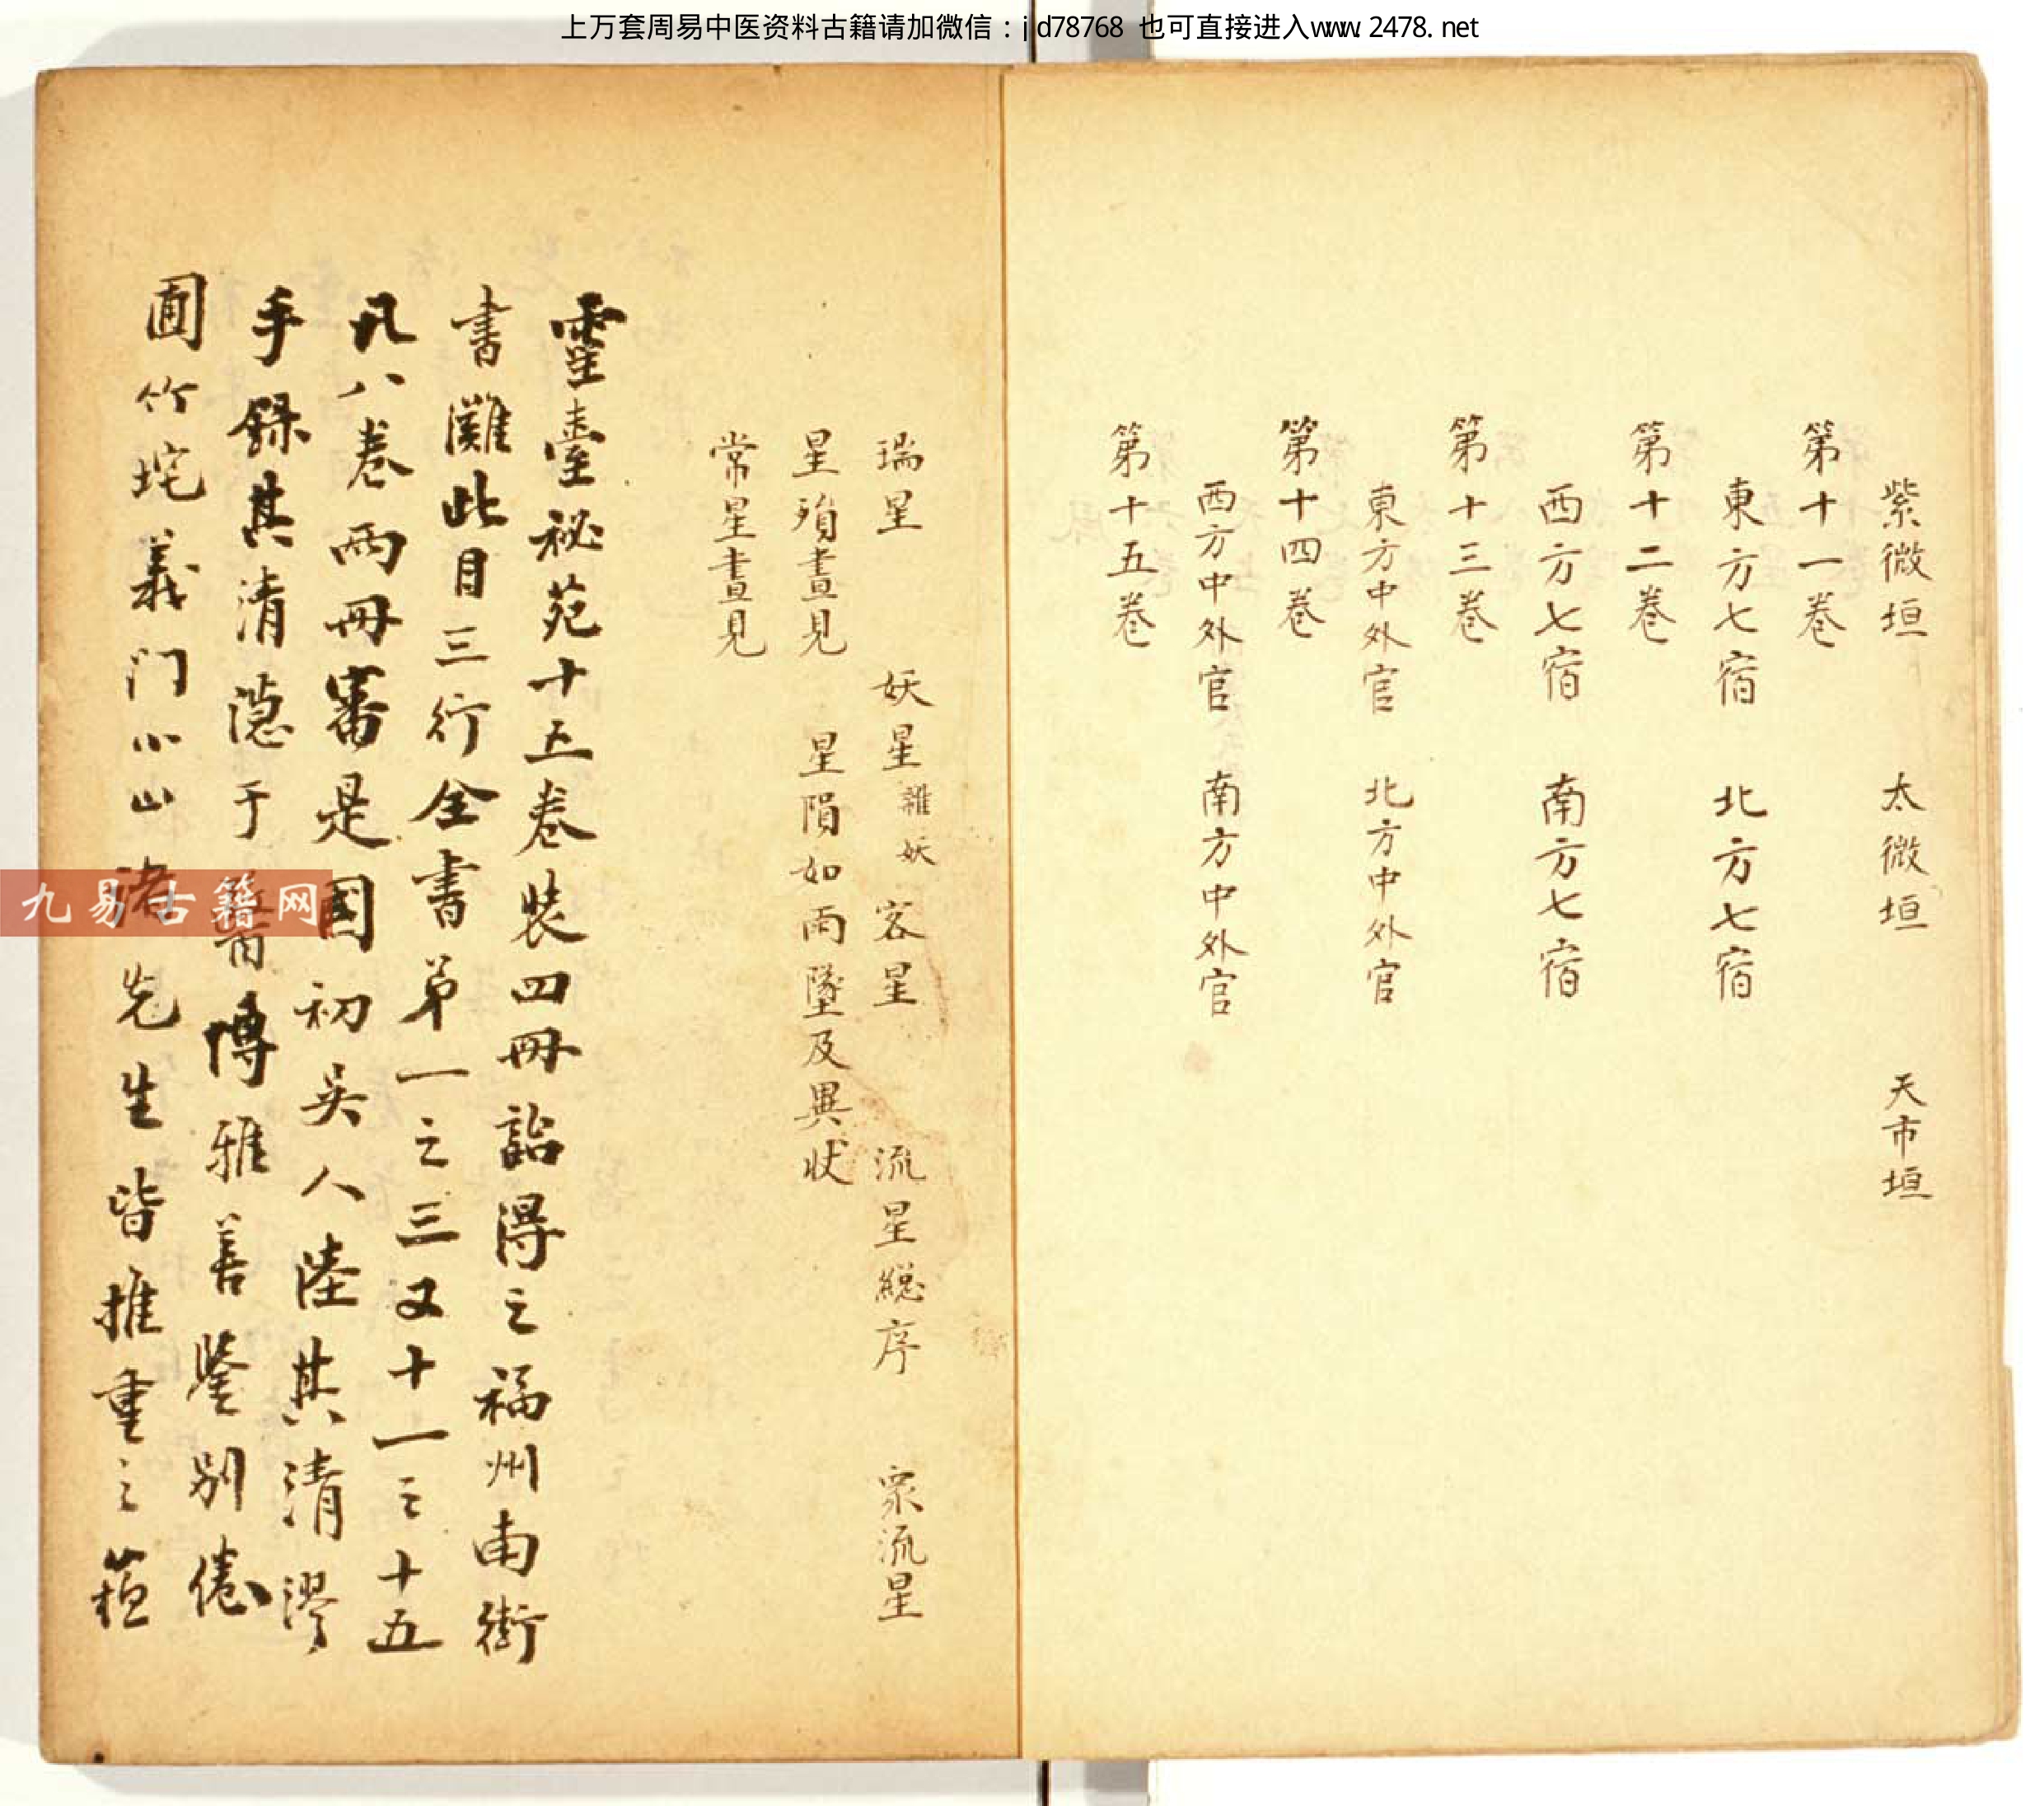 上万套周易中医资料古籍请加微信：jd78768 也可直接进入www.2478.net
紫微垣 太微垣 天市垣
第十一卷
東方七宿 北方七宿
第十二卷
西方七宿 南方七宿
第十三卷
東方中外官 北方中外官
第十四卷
西方中外官 南方中外官
第十五卷
瑞星 妖星 雜妖 客星 流星總序 衆流星
星殞晝見 星隕如雨墜及異狀
常星晝見
靈臺秘苑十五卷裝四冊詒得之福州南街
書灘此目三行全書第一之三又十一之十五
凡八卷兩冊審是國初吳人陸其清漻
手録其清隱于醫博雅善鑒別倦
圃竹垞義门小山諸先生皆推重之
九易古籍网